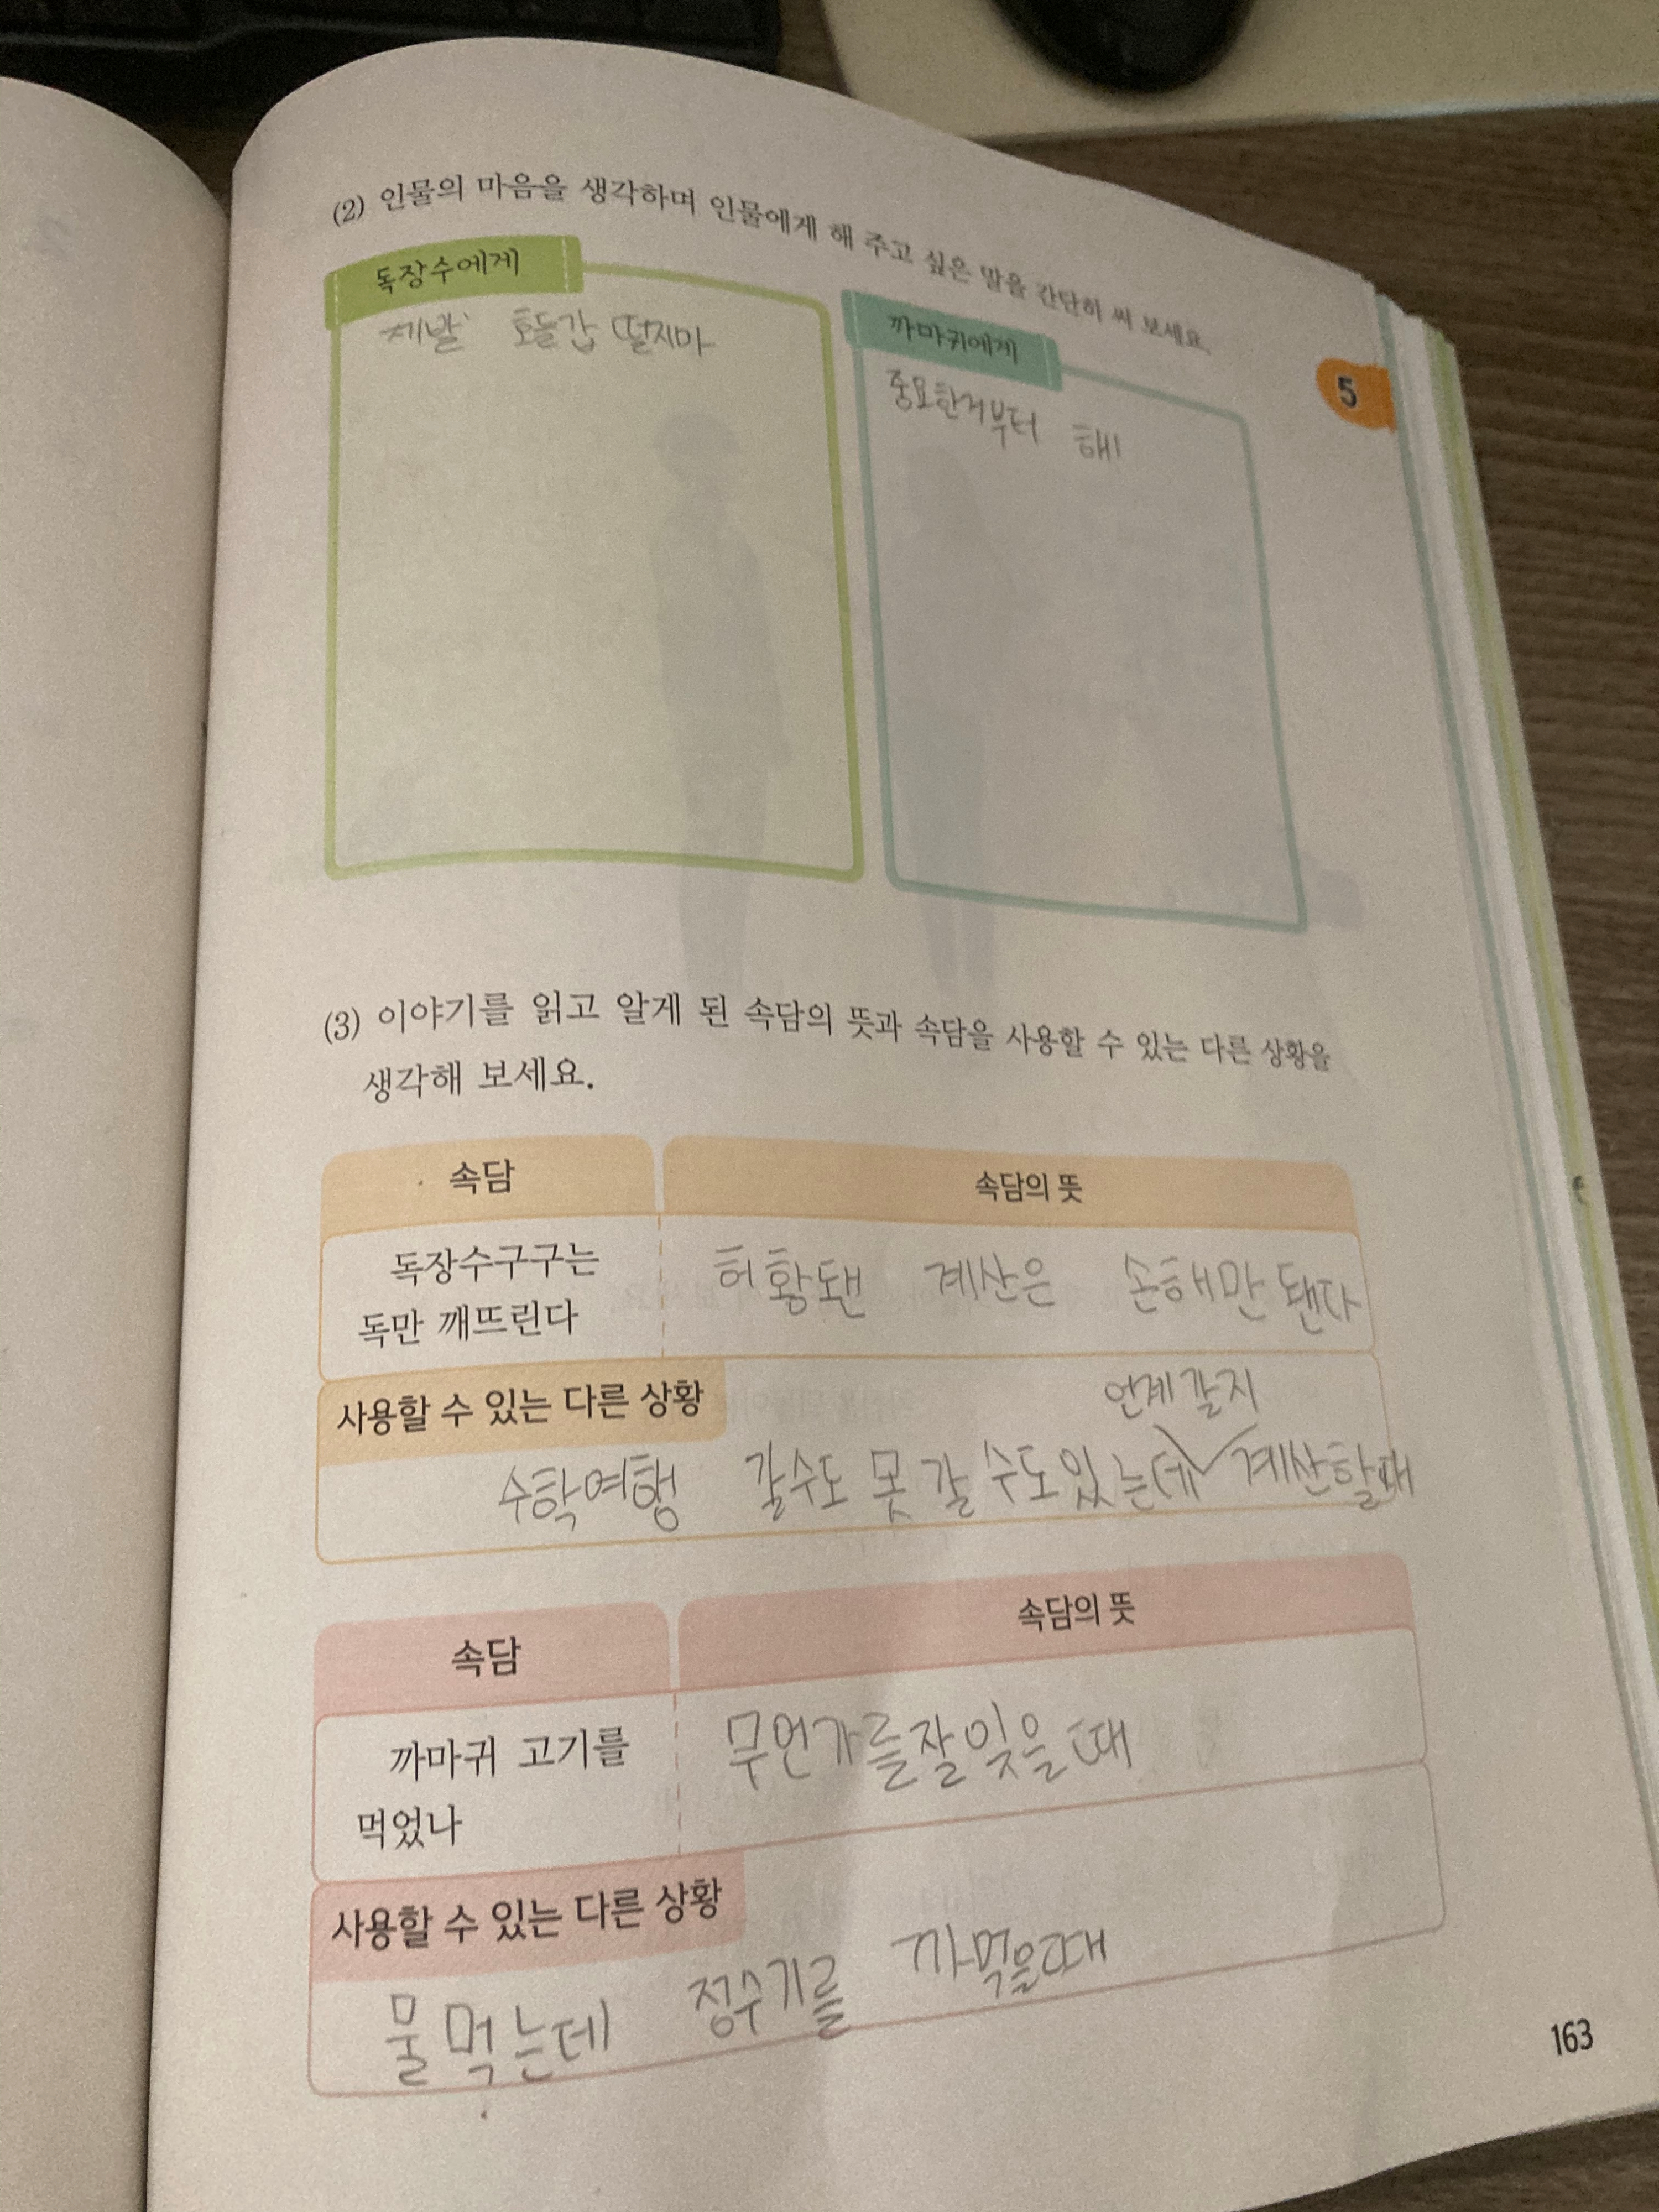 (2) 인물의 마음을 생각하며 인물에게 해 주고 싶은 말을 간단히 써 보세요.
독장수에게
제발 호들갑 떨지마
까마귀에게
중요한거부터 해!
5
(3) 이야기를 읽고 알게 된 속담의 뜻과 속담을 사용할 수 있는 다른 상황을
생각해 보세요.
속담
속담의 뜻
독장수구구는
독만 깨뜨린다
허황됀 계산은 손해만 됀다
사용할 수 있는 다른 상황
언제갈지
수학여행 갈수도 못갈 수도있는데 계산할때
속담
속담의 뜻
까마귀 고기를
먹었나
무언가를잘잊을때
사용할 수 있는 다른 상황
물먹는데 정수기를 까먹을때
163